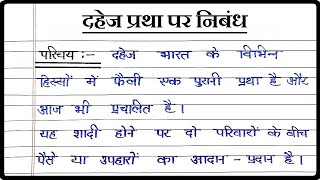 दहेज प्रथा पर निबंध
परिचय :- दहेज भारत के विभिन
हिस्सों में फैली एक पुरानी प्रथा है और
आज भी प्रचालित है।
यह शादी होने पर दो परिवारों के बीच
पैसे या उपहारों का आदान - प्रदान है।